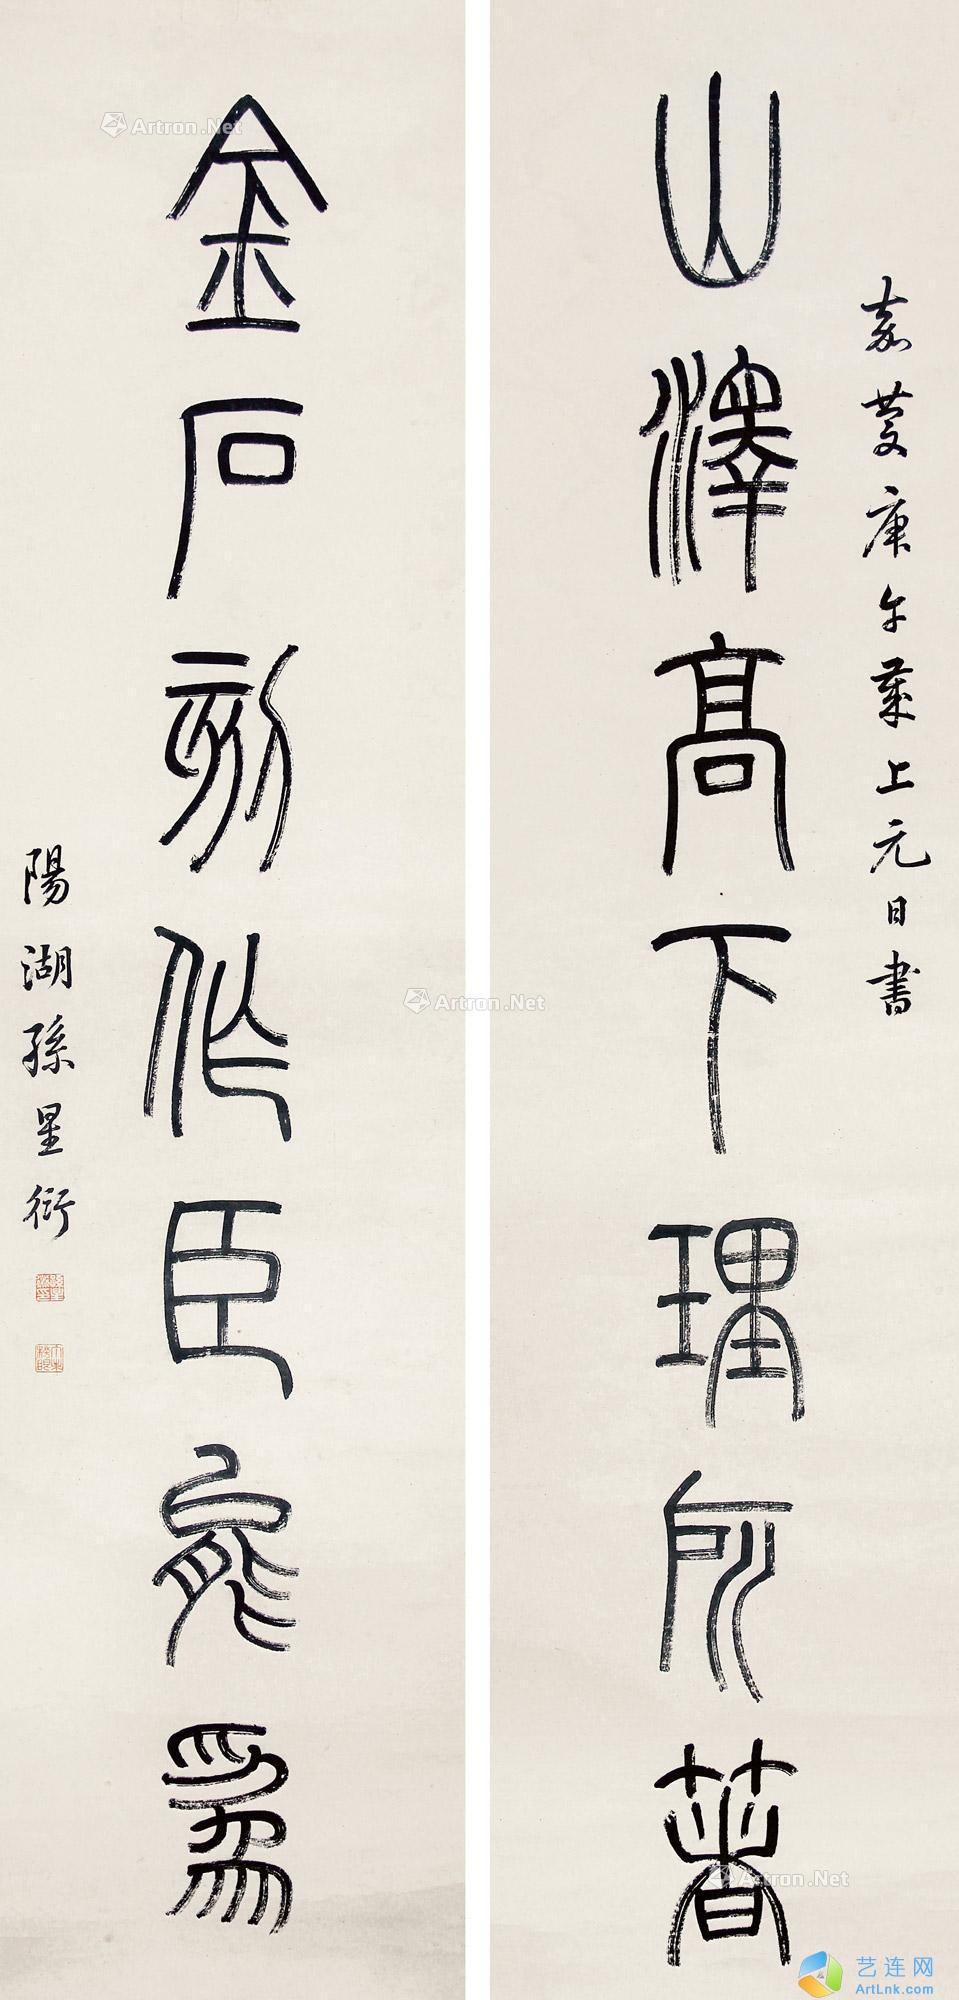 嘉慶庚午歲上元日書
山澤高下理所著
金石刻作臣能爲
陽湖孫星衍
Artron.Net
Artron.Net
Artron.Net
艺连网
ArtLnk.com